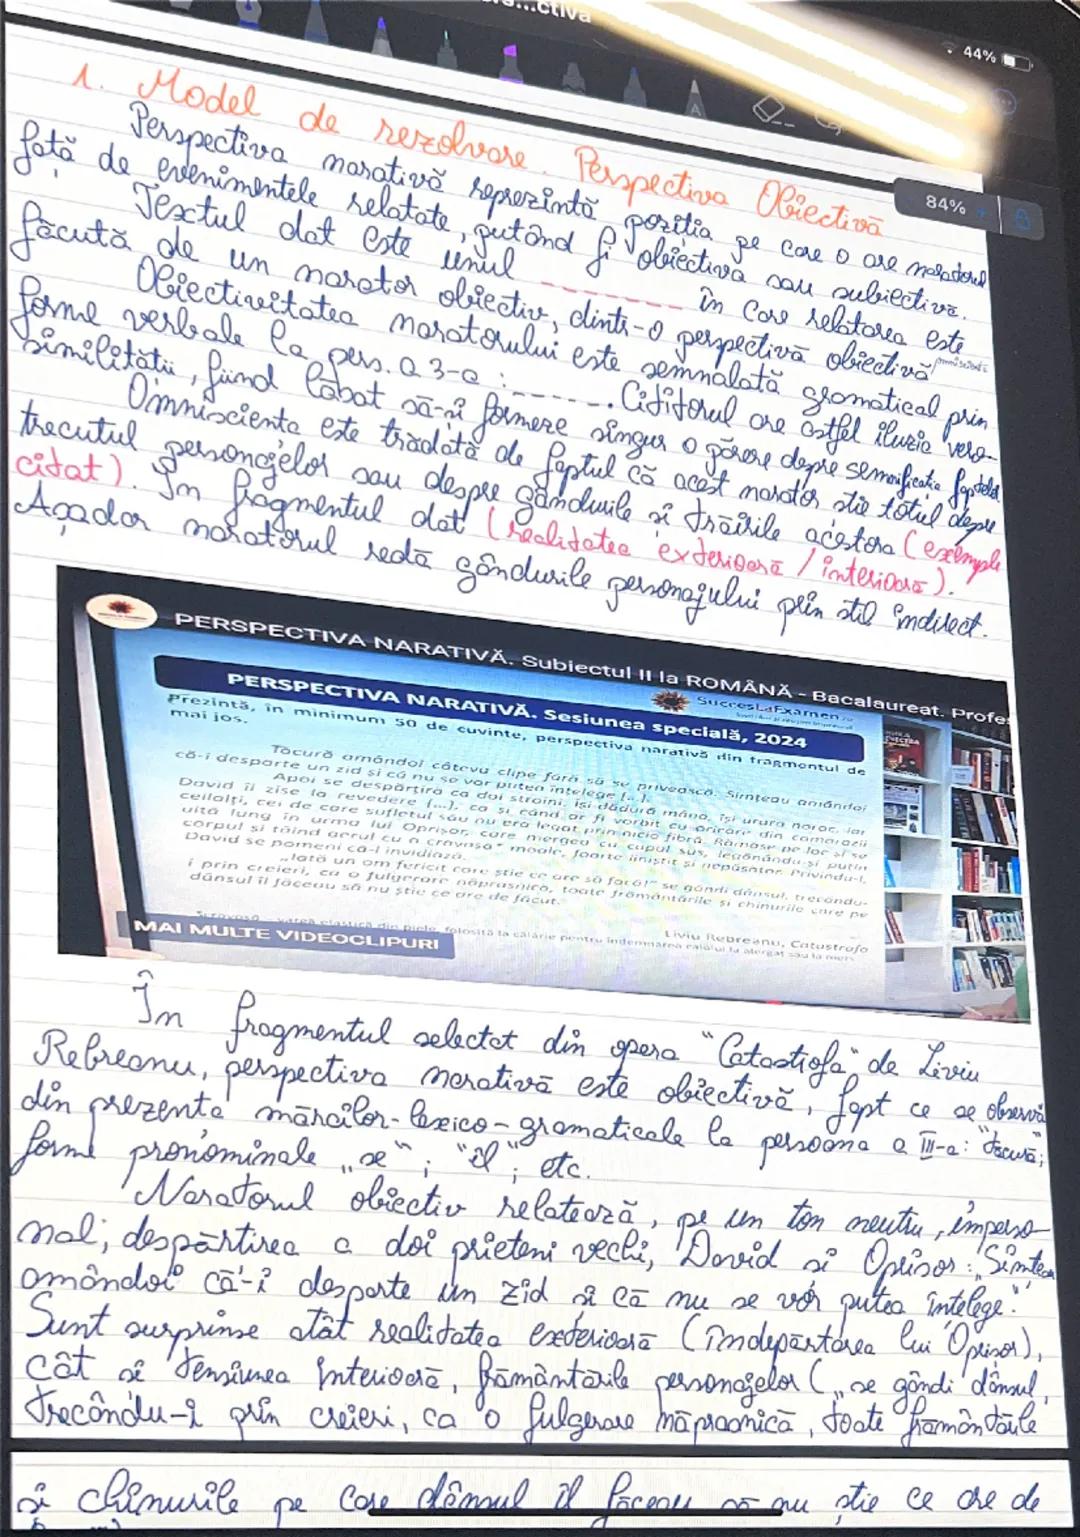 ctiva
44%
84%
1. Model de rezolvare. Perspectiva Obiectivă
Perspectiva narativă reprezintă poziția pe care o are naratorul
față de evenimentele relatate, putând fi obiectivă sau subiectivă.
Textul dat este unul ------- în care relatarea este
făcută de un narator obiectiv, dintr-o perspectivă obiectivă omniscientă
Obiectivitatea naratorului este semnalată gramatical prin
forme verbale la pers. a 3-a : ------. Cititorul are astfel iluzia vero-
similității, fiind lăsat să-și formeze singur o părere depre semnificația faptelor.
Omnisciența este trădată de faptul că acest narator știe totul depre
trecutul personajelor sau despre gândurile și trăirile acestora (exemple
citat). În fragmentul dat (realitatea exterioară / interioară).
Așadar naratorul redă gândurile personajului prin stil indirect.
PERSPECTIVA NARATIVĂ. Subiectul II la ROMÂNĂ - Bacalaureat. Profes
SuccesLaExamen.ro
PERSPECTIVA NARATIVĂ. Sesiunea specială, 2024
Prezintă, în minimum 50 de cuvinte, perspectiva narativă din fragmentul de
mai jos.
Tăcură amândoi câteva clipe fără să se privească. Simțeau amândoi
că-i desparte un zid și că nu se vor putea înțelege [...].
Apoi se despărțiră ca doi străini, își dădură mâna, își urară noroc, iar
David îi zise la revedere [...], ca și când ar fi vorbit cu oricare din camarazii
ceilalți, cei de care sufletul său nu era legat prin nicio fibră. Rămase pe loc și se
uită lung în urma lui Oprișor, care mergea cu capul sus, legănându-și puțin
corpul și tăind aerul cu o cravașă* moale, foarte liniștit și nepăsător. Privindu-l,
David se pomeni că-l invidiază.
„Iată un om fericit care știe ce are să facă!" se gândi dânsul, trecându-
i prin creieri, ca o fulgerare năprasnică, toate frământările și chinurile care pe
dânsul îl făceau să nu știe ce are de făcut.
Liviu Rebreanu, Catastrofa
*cravașă – vargă elastică din piele, folosită la călărie pentru îndemnarea calului la alergat sau la mers
MAI MULTE VIDEOCLIPURI
În fragmentul selectat din opera "Catastrofa" de Liviu
Rebreanu, perspectiva narativă este obiectivă, fapt ce se observă
din prezența mărcilor-lexico-gramaticale la persoana a III-a: "tăcură";
forme pronominale „se"; "îl"; etc.
Naratorul obiectiv relatează, pe un ton neutru, imperso-
nal; despărțirea a doi prieteni vechi, David și Oprișor: „Simțeau
amândoi că-i desparte un zid și că nu se vor putea înțelege."
Sunt surprinse atât realitatea exterioară (îndepărtarea lui Oprișor),
cât și tensiunea interioară, frământările personajelor („se gândi dânsul,
trecându-i prin creieri, ca o fulgerare năprasnică, toate frământările
și chinurile pe care dânsul îl făceau să nu știe ce are de